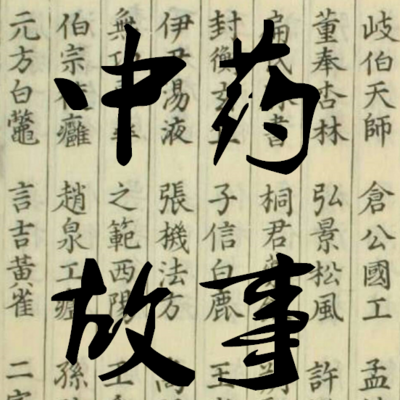 中药
故事
岐伯天師 倉公國工 孟
董奉杏林 弘景松風 許
書 桐君
封衡 子信白鹿 王
伊尹湯液 張機法方
之範西
伯宗癰 趙泉工 孫
元方白鼈 言吉黃雀 二